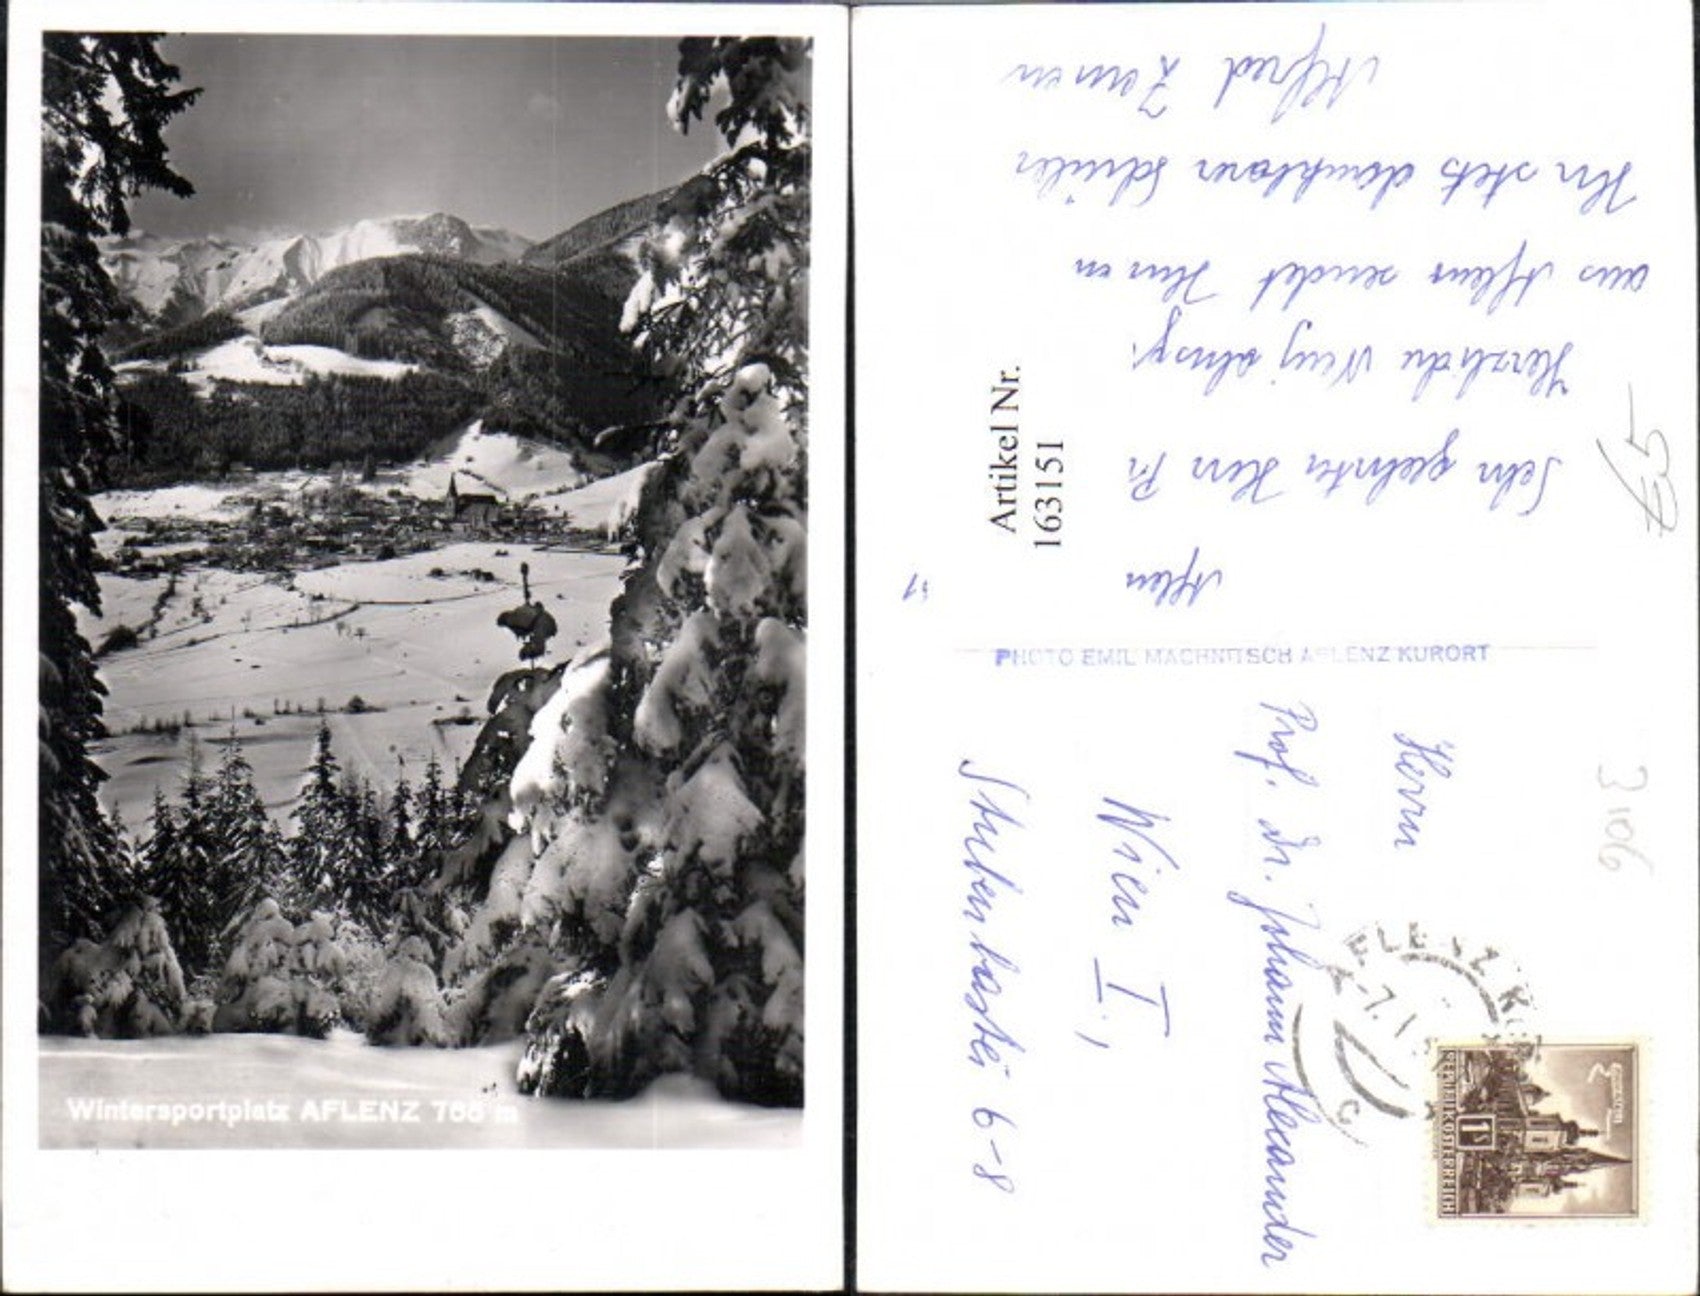 Wintersportplatz AFLENZ 765 m
Artikel Nr.
163151
Aflenz
Sehr geehrter Herr
Herzliche
aus Aflenz sendet Ihnen
Ihr stets dankbarer Schüler
Alfred
PHOTO EMIL MACHNITSCH AFLENZ KURORT
Herrn
Prof. Dr. Johann Alexander
Wien I.,
Stubenbastei 6-8
€5
3106
REPUBLIK ÖSTERREICH
1 S